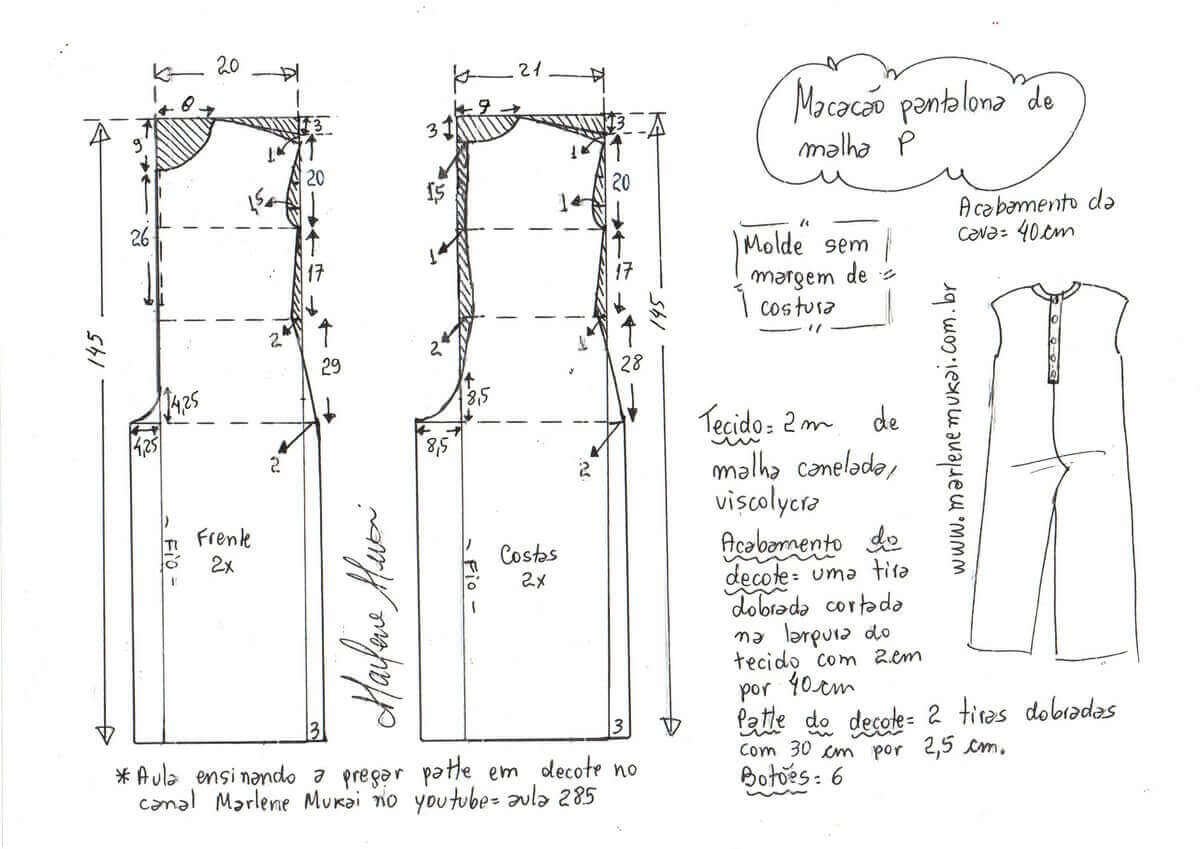 20
8
9
3
1
20
1,5
26
17
2
29
145
4,25
4,25
2
Frente
2x
-Fio-
3
21
9
3
3
1
1,5
20
1
1
17
2
1
28
145
8,5
8,5
2
Costas
2x
-Fio-
3
Marlene Mukai
Macacão pantalona de
malha P
Acabamento da
cava= 40cm
Molde sem
margem de
costura
www.marlenemukai.com.br
Tecido= 2m de
malha canelada,
viscolycra
Acabamento do
decote= uma tira
dobrada cortada
na largura do
tecido com 2cm
por 40cm
Patte do decote= 2 tiras dobradas
com 30 cm por 2,5 cm.
Botões= 6
*Aula ensinando a pregar patte em decote no
canal Marlene Mukai no youtube= aula 285